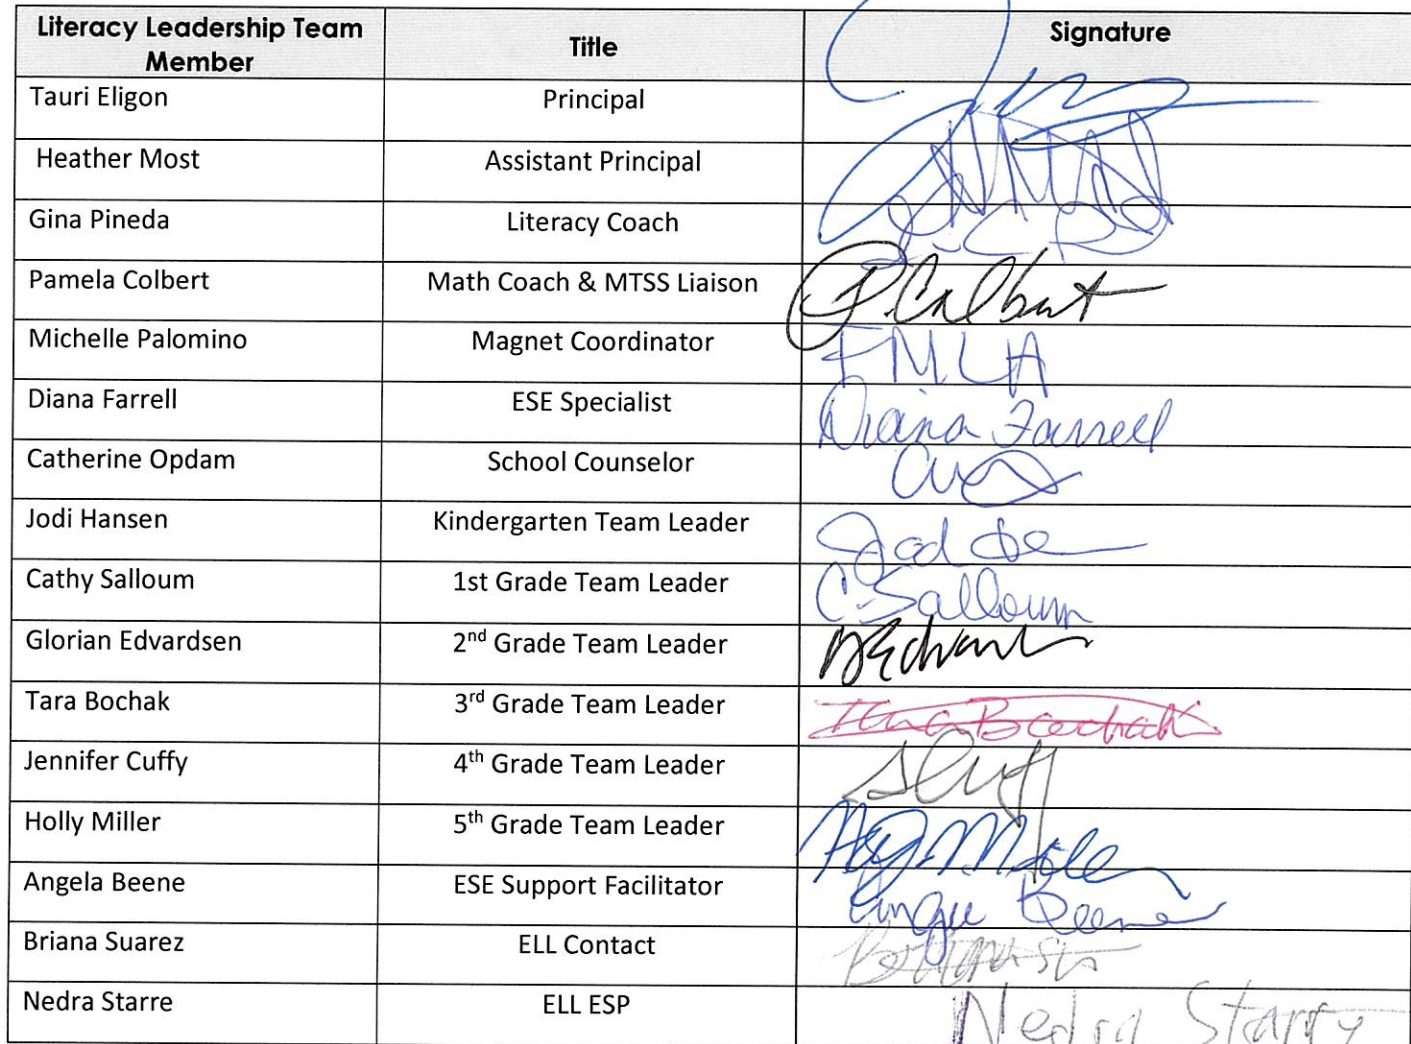 Literacy Leadership Team Member Title Signature
Tauri Eligon Principal
Heather Most Assistant Principal
Gina Pineda Literacy Coach
Pamela Colbert Math Coach & MTSS Liaison P. Colbert
Michelle Palomino Magnet Coordinator FMLA
Diana Farrell ESE Specialist Diana Farrell
Catherine Opdam School Counselor
Jodi Hansen Kindergarten Team Leader
Cathy Salloum 1st Grade Team Leader C. Salloum
Glorian Edvardsen 2nd Grade Team Leader
Tara Bochak 3rd Grade Team Leader Tara Bochak
Jennifer Cuffy 4th Grade Team Leader
Holly Miller 5th Grade Team Leader
Angela Beene ESE Support Facilitator
Briana Suarez ELL Contact
Nedra Starre ELL ESP Nedra